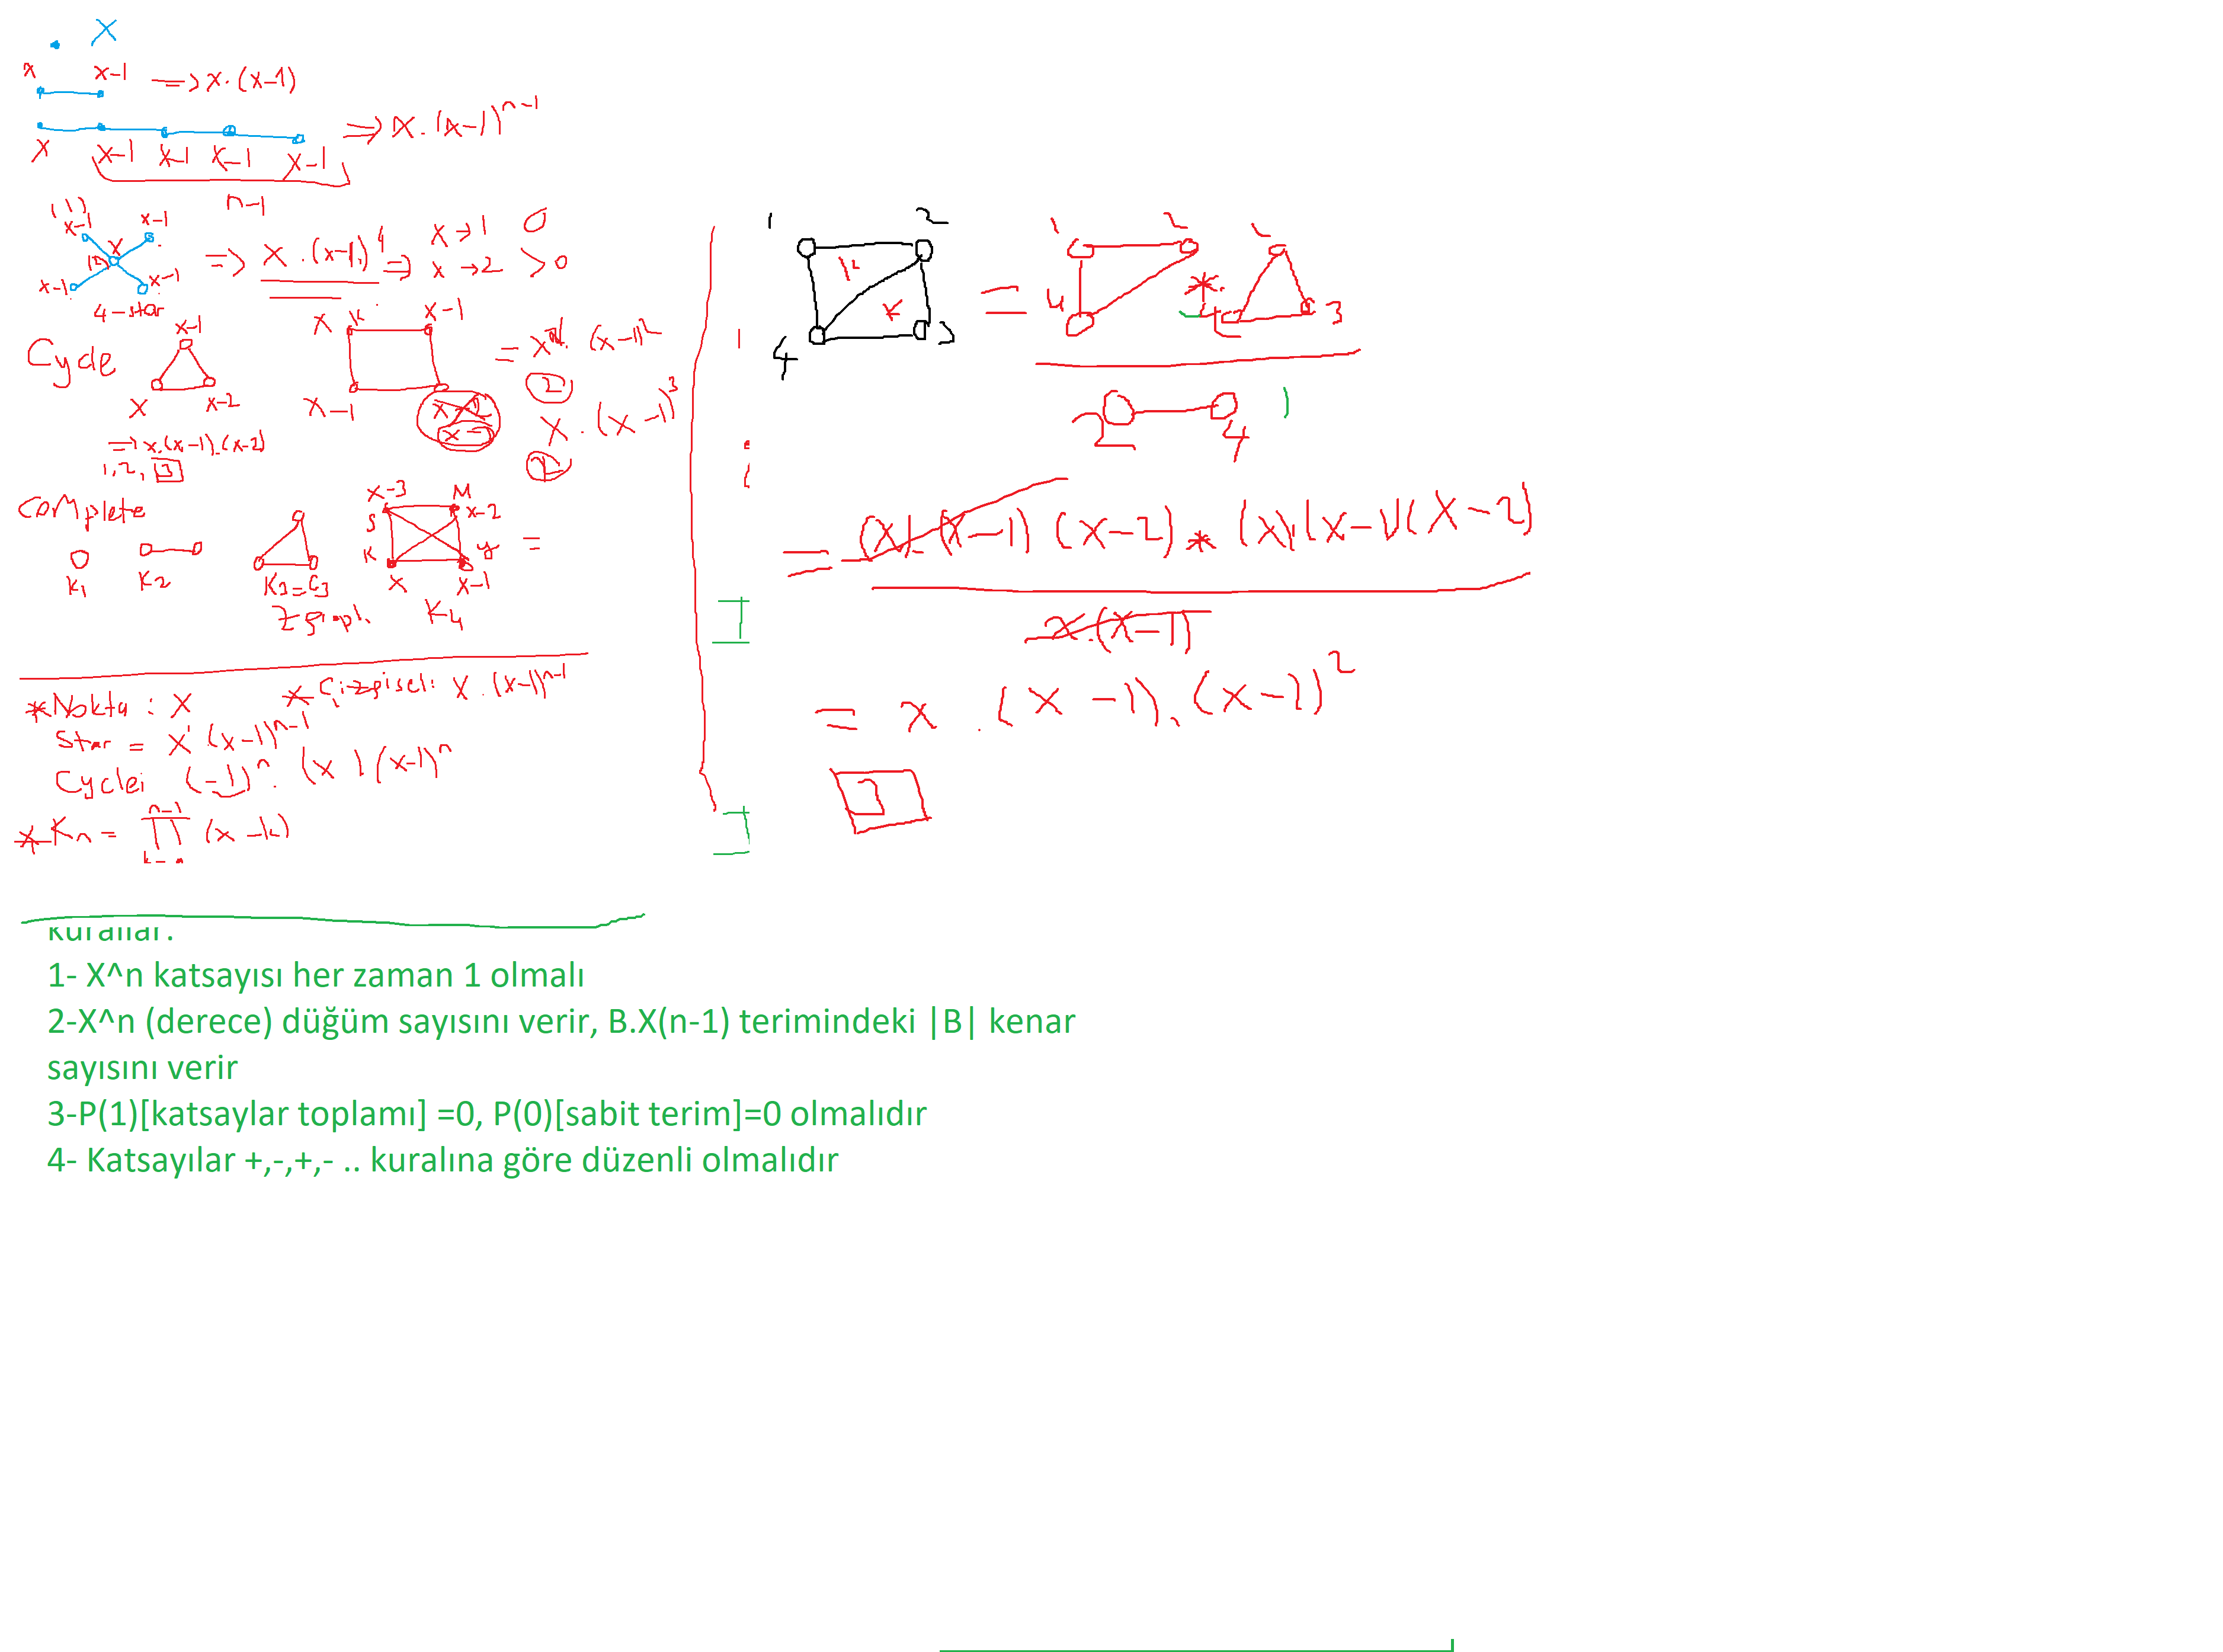 X
x x-1 => x.(x-1)
=> x.(x-1)^n-1
x x-1 x-1 x-1 x-1
n-1
(1)
x-1 x-1
x
(2)
x-1 x-1
4-star
=> x.(x-1)^4 => x→1 0
x→2 >0
Cycle
x-1
x x-2
=> x.(x-1).(x-2)
1,2,3
x K x-1
x-1
= x. (x-1)^2
2
x.(x-1)^3
2
complete
K1
K2
K3=C3
x-3 M
S x-2
K y =
x x-1
K4
*Nokta : X
*Çizgisel: x.(x-1)^n-1
Star = x.(x-1)^n-1
Cycle: (-1)^n. (x ) (x-1)^n
*Kn = ∏ (x-k)
n-1
1 2
4
K
=
1 2
4
*
3
2 4
= (x).(x-1)(x-2) * (x).(x-1)(x-2)
x.(x-1)
= x.(x-1).(x-2)^2
kurallar:
1- X^n katsayısı her zaman 1 olmalı
2-X^n (derece) düğüm sayısını verir, B.X(n-1) terimindeki |B| kenar
sayısını verir
3-P(1)[katsaylar toplamı] =0, P(0)[sabit terim]=0 olmalıdır
4- Katsayılar +,-,+,- .. kuralına göre düzenli olmalıdır